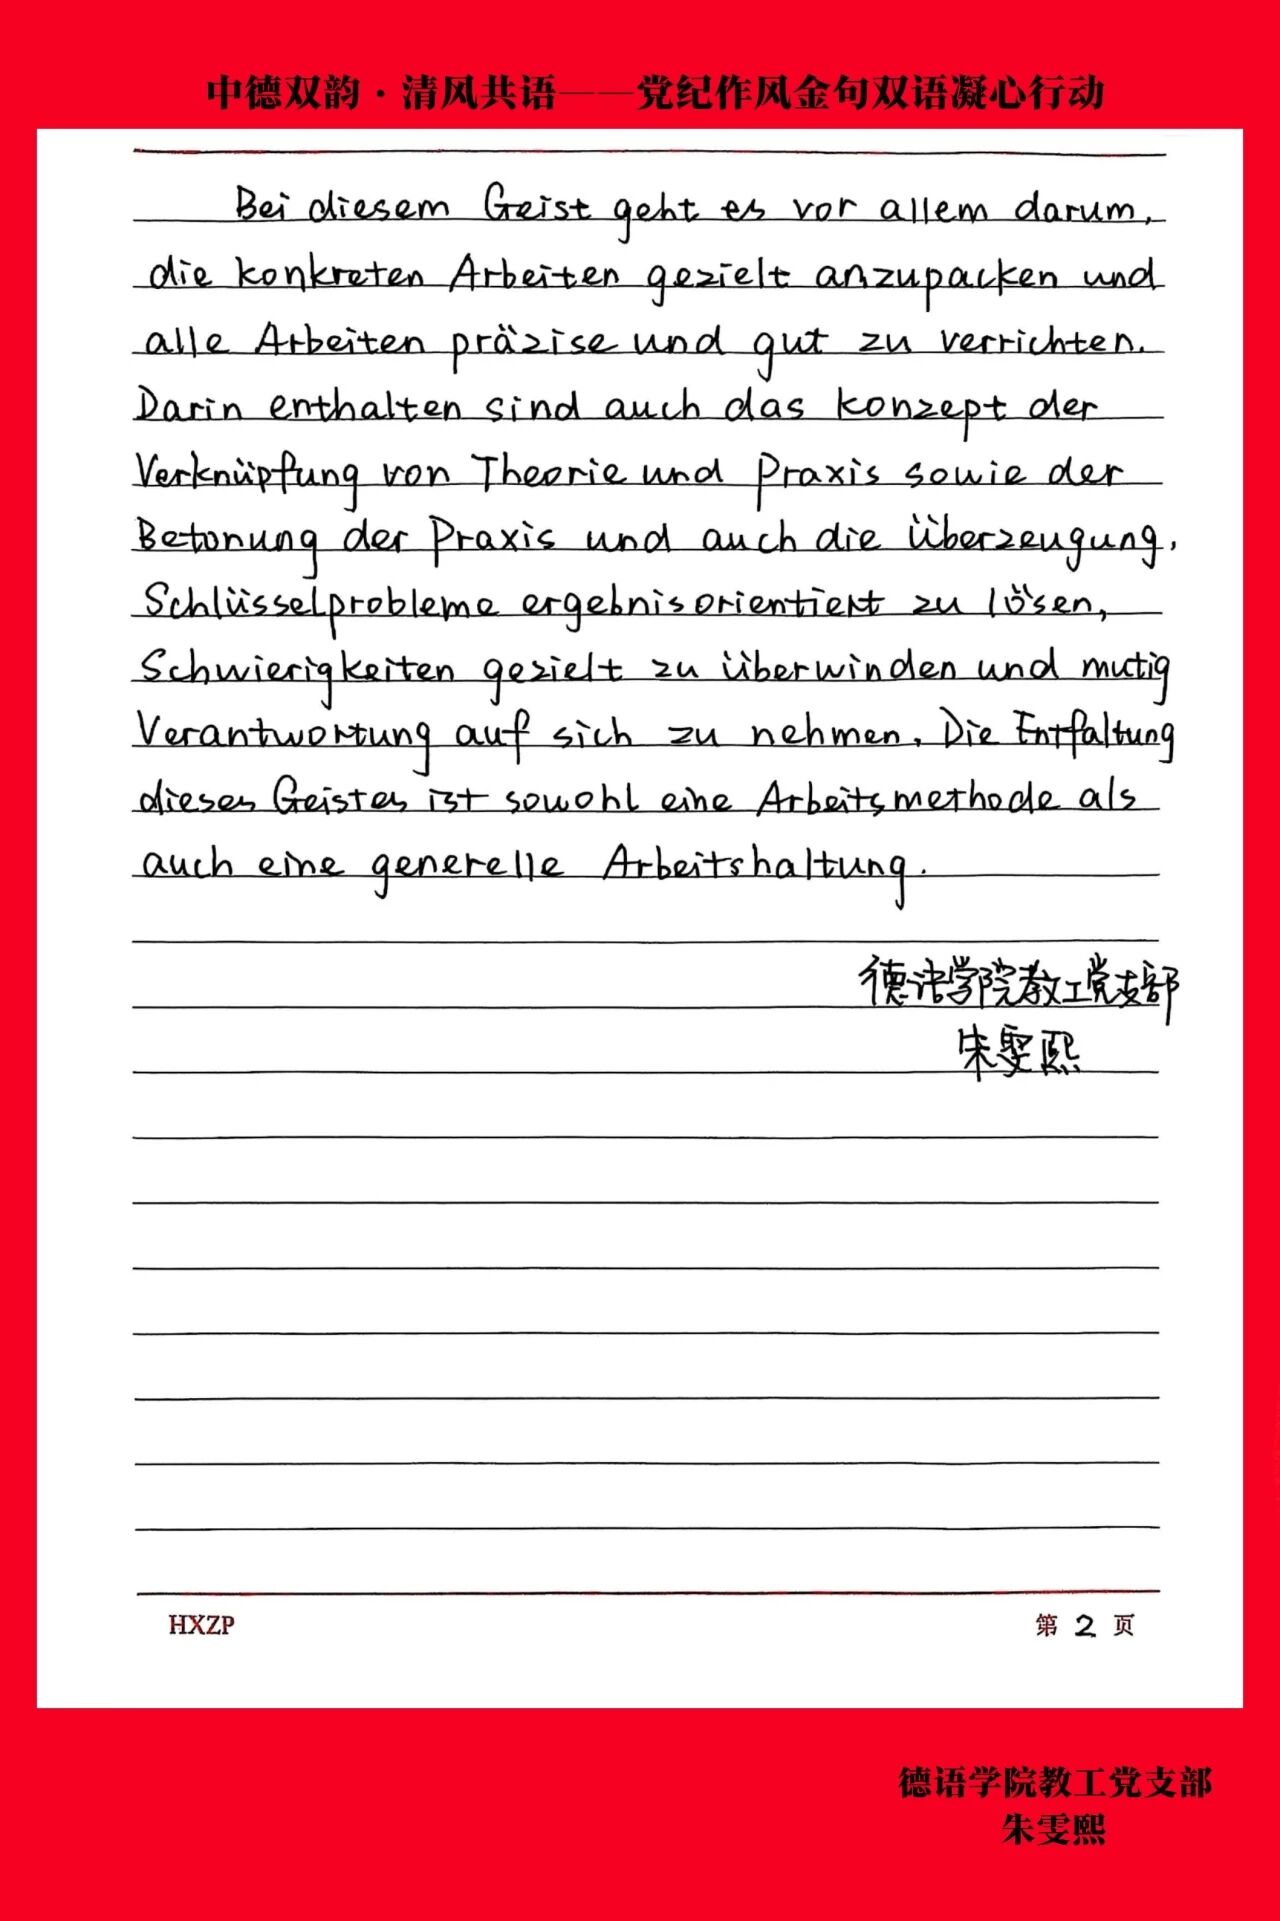 中德双韵·清风共语——党纪作风金句双语凝心行动
Bei diesem Geist geht es vor allem darum,
die konkreten Arbeiten gezielt anzupacken und
alle Arbeiten präzise und gut zu verrichten.
Darin enthalten sind auch das Konzept der
Verknüpfung von Theorie und Praxis sowie der
Betonung der Praxis und auch die Überzeugung,
Schlüsselprobleme ergebnisorientiert zu lösen,
Schwierigkeiten gezielt zu überwinden und mutig
Verantwortung auf sich zu nehmen. Die Entfaltung
dieses Geistes ist sowohl eine Arbeitsmethode als
auch eine generelle Arbeitshaltung.
德语学院教工党支部
朱雯熙
HXZP 第 2 页
德语学院教工党支部
朱雯熙